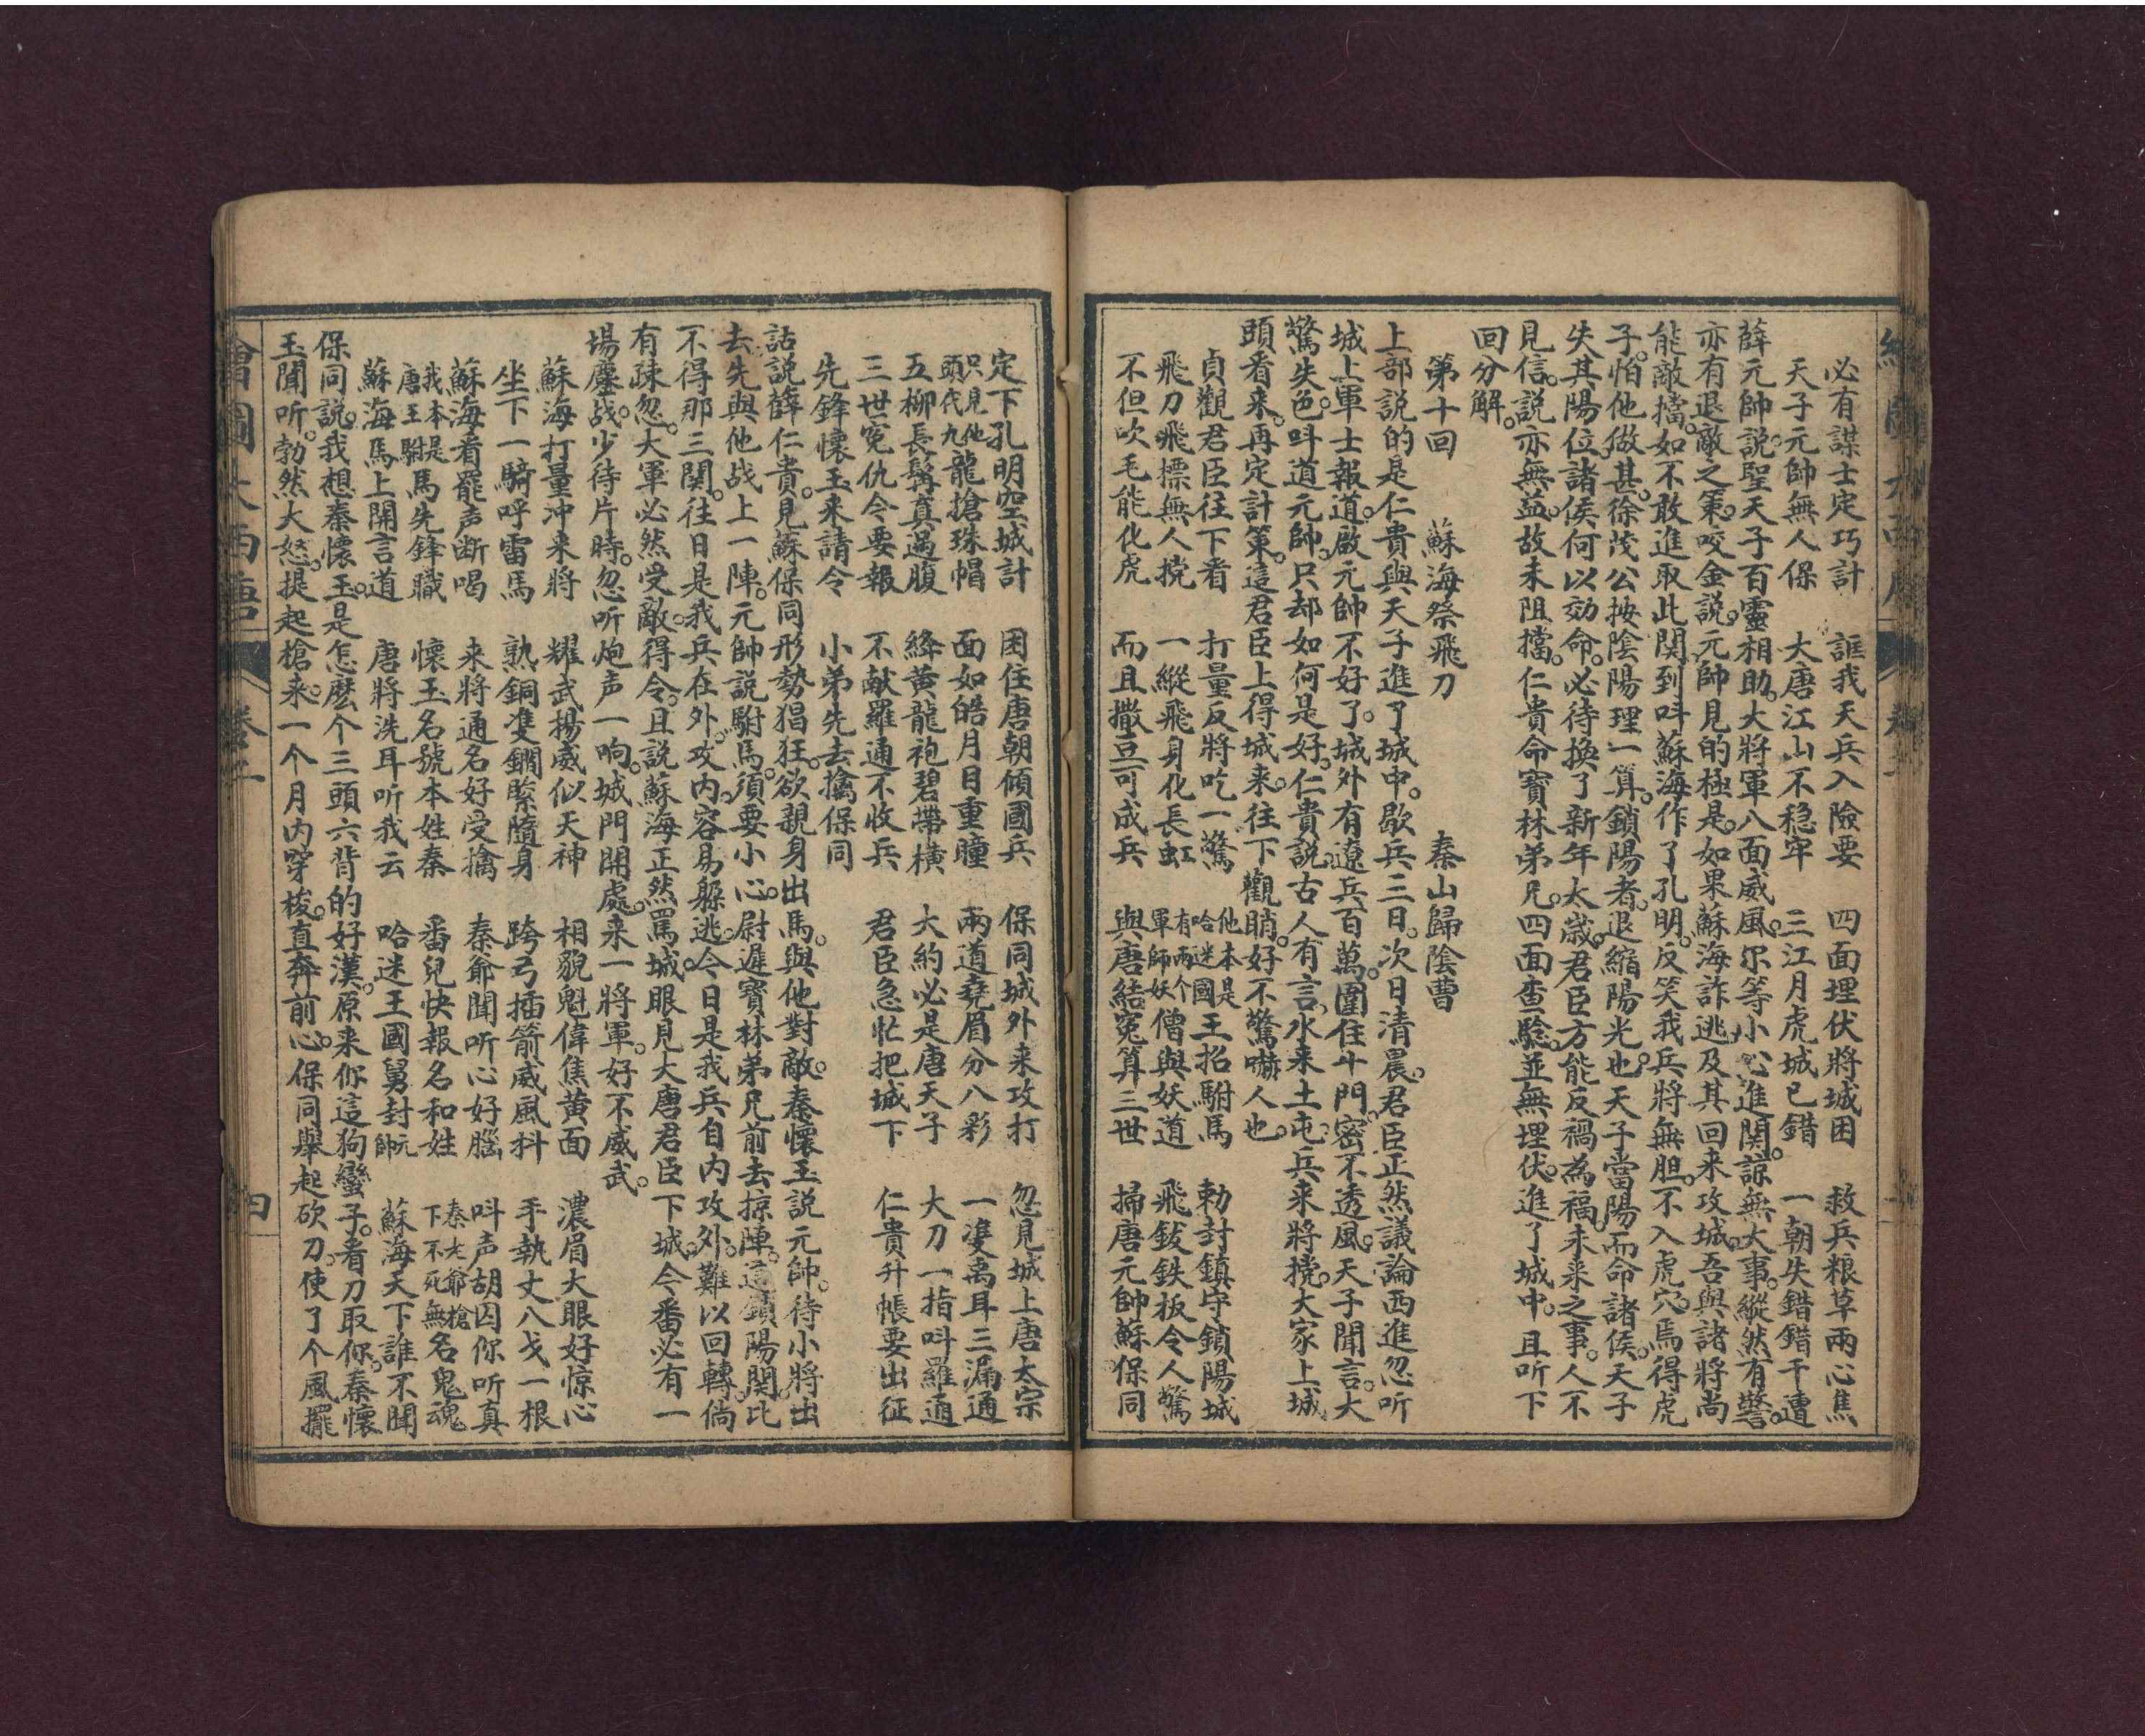 必有謀士定巧計　誆我天兵入險要　四面埋伏將城困　救兵粮草兩心焦
天子元帥無人保　大唐江山不穏牢　三江月虎城已錯　一朝失錯錯干遭
薛元帥說。聖天子百靈相助。大將軍八面威風。尔等小心進関。諒無大事。縱然有警。
亦有退敵之策。咬金說。元帥見的極是。如果蘇海詐逃。及其回来攻城。吾與諸將尚
能敵擋。如不敢進取此関。到呌蘇海作了孔明。反笑我兵將無胆。不入虎穴。焉得虎
子。怕他做甚。徐茂公按陰陽理一算。鎖陽者。退縮陽光也。天子當陽。而命諸侯。天子
失其陽位。諸侯何以効命。必待換了新年太歲。君臣方能反禍為福。未来之事。人不
見信。説亦無益。故未阻擋。仁貴命寶林弟兄。四面查騐。並無埋伏。進了城中。且听下
回分解。
第十回　蘇海祭飛刀　秦山歸陰曹
上部説的是仁貴與天子進了城中。歇兵三日。次日清晨。君臣正然議論西進。忽听
城上軍士報道。啟元帥不好了。城外有遼兵百萬。圍住斗門。密不透風。天子聞言。大
驚失色。呌道元帥。只却如何是好。仁貴說。古人有言。水来土屯。兵来將撓。大家上城
頭看来。再定計策。這君臣上得城来。往下觀瞧。好不驚嚇人也。
貞觀君臣往下看　打量反將吃一驚　他本是哈迷國王招駙馬　勅封鎮守鎖陽城
飛刀飛摽無人撓　一縱飛身化長虹　有兩个軍師妖僧與妖道　飛鈸鉄板令人驚
不但吹毛能化虎　而且撒豆可成兵　與唐結寃算三世　掃唐元帥蘇保同
定下孔明空城計　困住唐朝傾國兵　保同城外来攻打　忽見城上唐太宗
只見他頭代九龍搶珠帽　面如皓月日重瞳　兩道堯眉分八彩　一雙禹耳三漏通
五柳長髯真過腹　絳黄龍袍碧帶橫　大約必是唐天子　大刀一指呌羅通
三世寃仇今要報　不献羅通不收兵　君臣急忙把城下　仁貴升帳要出征
先鋒懷玉来請令　小弟先去擒保同
話說薛仁貴。見蘇保同形勢猖狂。欲親身出馬。與他對敵。秦懷玉說元帥。待小將出
去先與他战上一陣。元帥說駙馬。須要小心。尉遲寳林弟兄前去掠陣。這鎖陽関。比
不得那三関。往日是我兵在外。攻内。容易躲逃。今日是我兵自内攻外。難以回轉。倘
有疎忽。大軍必然受敵。得令。且說蘇海正然罵城。眼見大唐君臣下城。今番必有一
場鏖战。少待片時。忽听炮声一响。城門開處。来一將軍。好不威武。
蘇海打量冲来將　耀武揚威似天神　相貌魁偉焦黄面　濃眉大眼好惊心
坐下一騎呼雷馬　熟銅雙鐧緊隨身　跨弓插箭威風抖　手執丈八戈一根
蘇海看罷声断喝　来將通名好受擒　秦爺聞听心好腦　呌声胡囚你听真
我本是唐王駙馬先鋒職　懷玉名號本姓秦　番兒快報名和姓　秦老爺槍下不死無名鬼魂
蘇海馬上開言道　唐將洗耳听我云　哈迷王國舅封元帥　蘇海天下誰不聞
保同說。我想秦懷玉。是怎麽个三頭六背的好漢。原来你這狗蠻子。看刀取你。秦懷
玉聞听。勃然大怒。提起槍来。一个月内穿梭。直奔前心。保同舉起砍刀。使了个風擺
繪圖大西唐　卷二　四